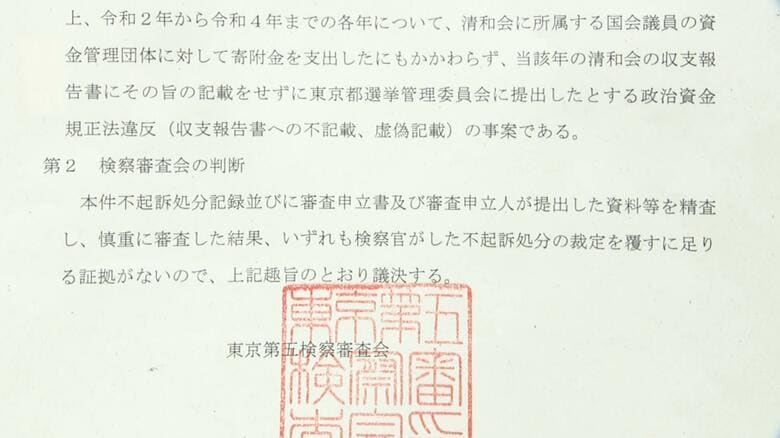 上、令和２年から令和４年までの各年について、清和会に所属する国会議員の資
金管理団体に対して寄附金を支出したにもかかわらず、当該年の清和会の収支報
告書にその旨の記載をせずに東京都選挙管理委員会に提出したとする政治資金
規正法違反（収支報告書への不記載、虚偽記載）の事案である。
第２　検察審査会の判断
本件不起訴処分記録並びに審査申立書及び審査申立人が提出した資料等を精査
し、慎重に審査した結果、いずれも検察官がした不起訴処分の裁定を覆すに足り
る証拠がないので、上記趣旨のとおり議決する。
東京第五検察審査会
東京第五
検察審